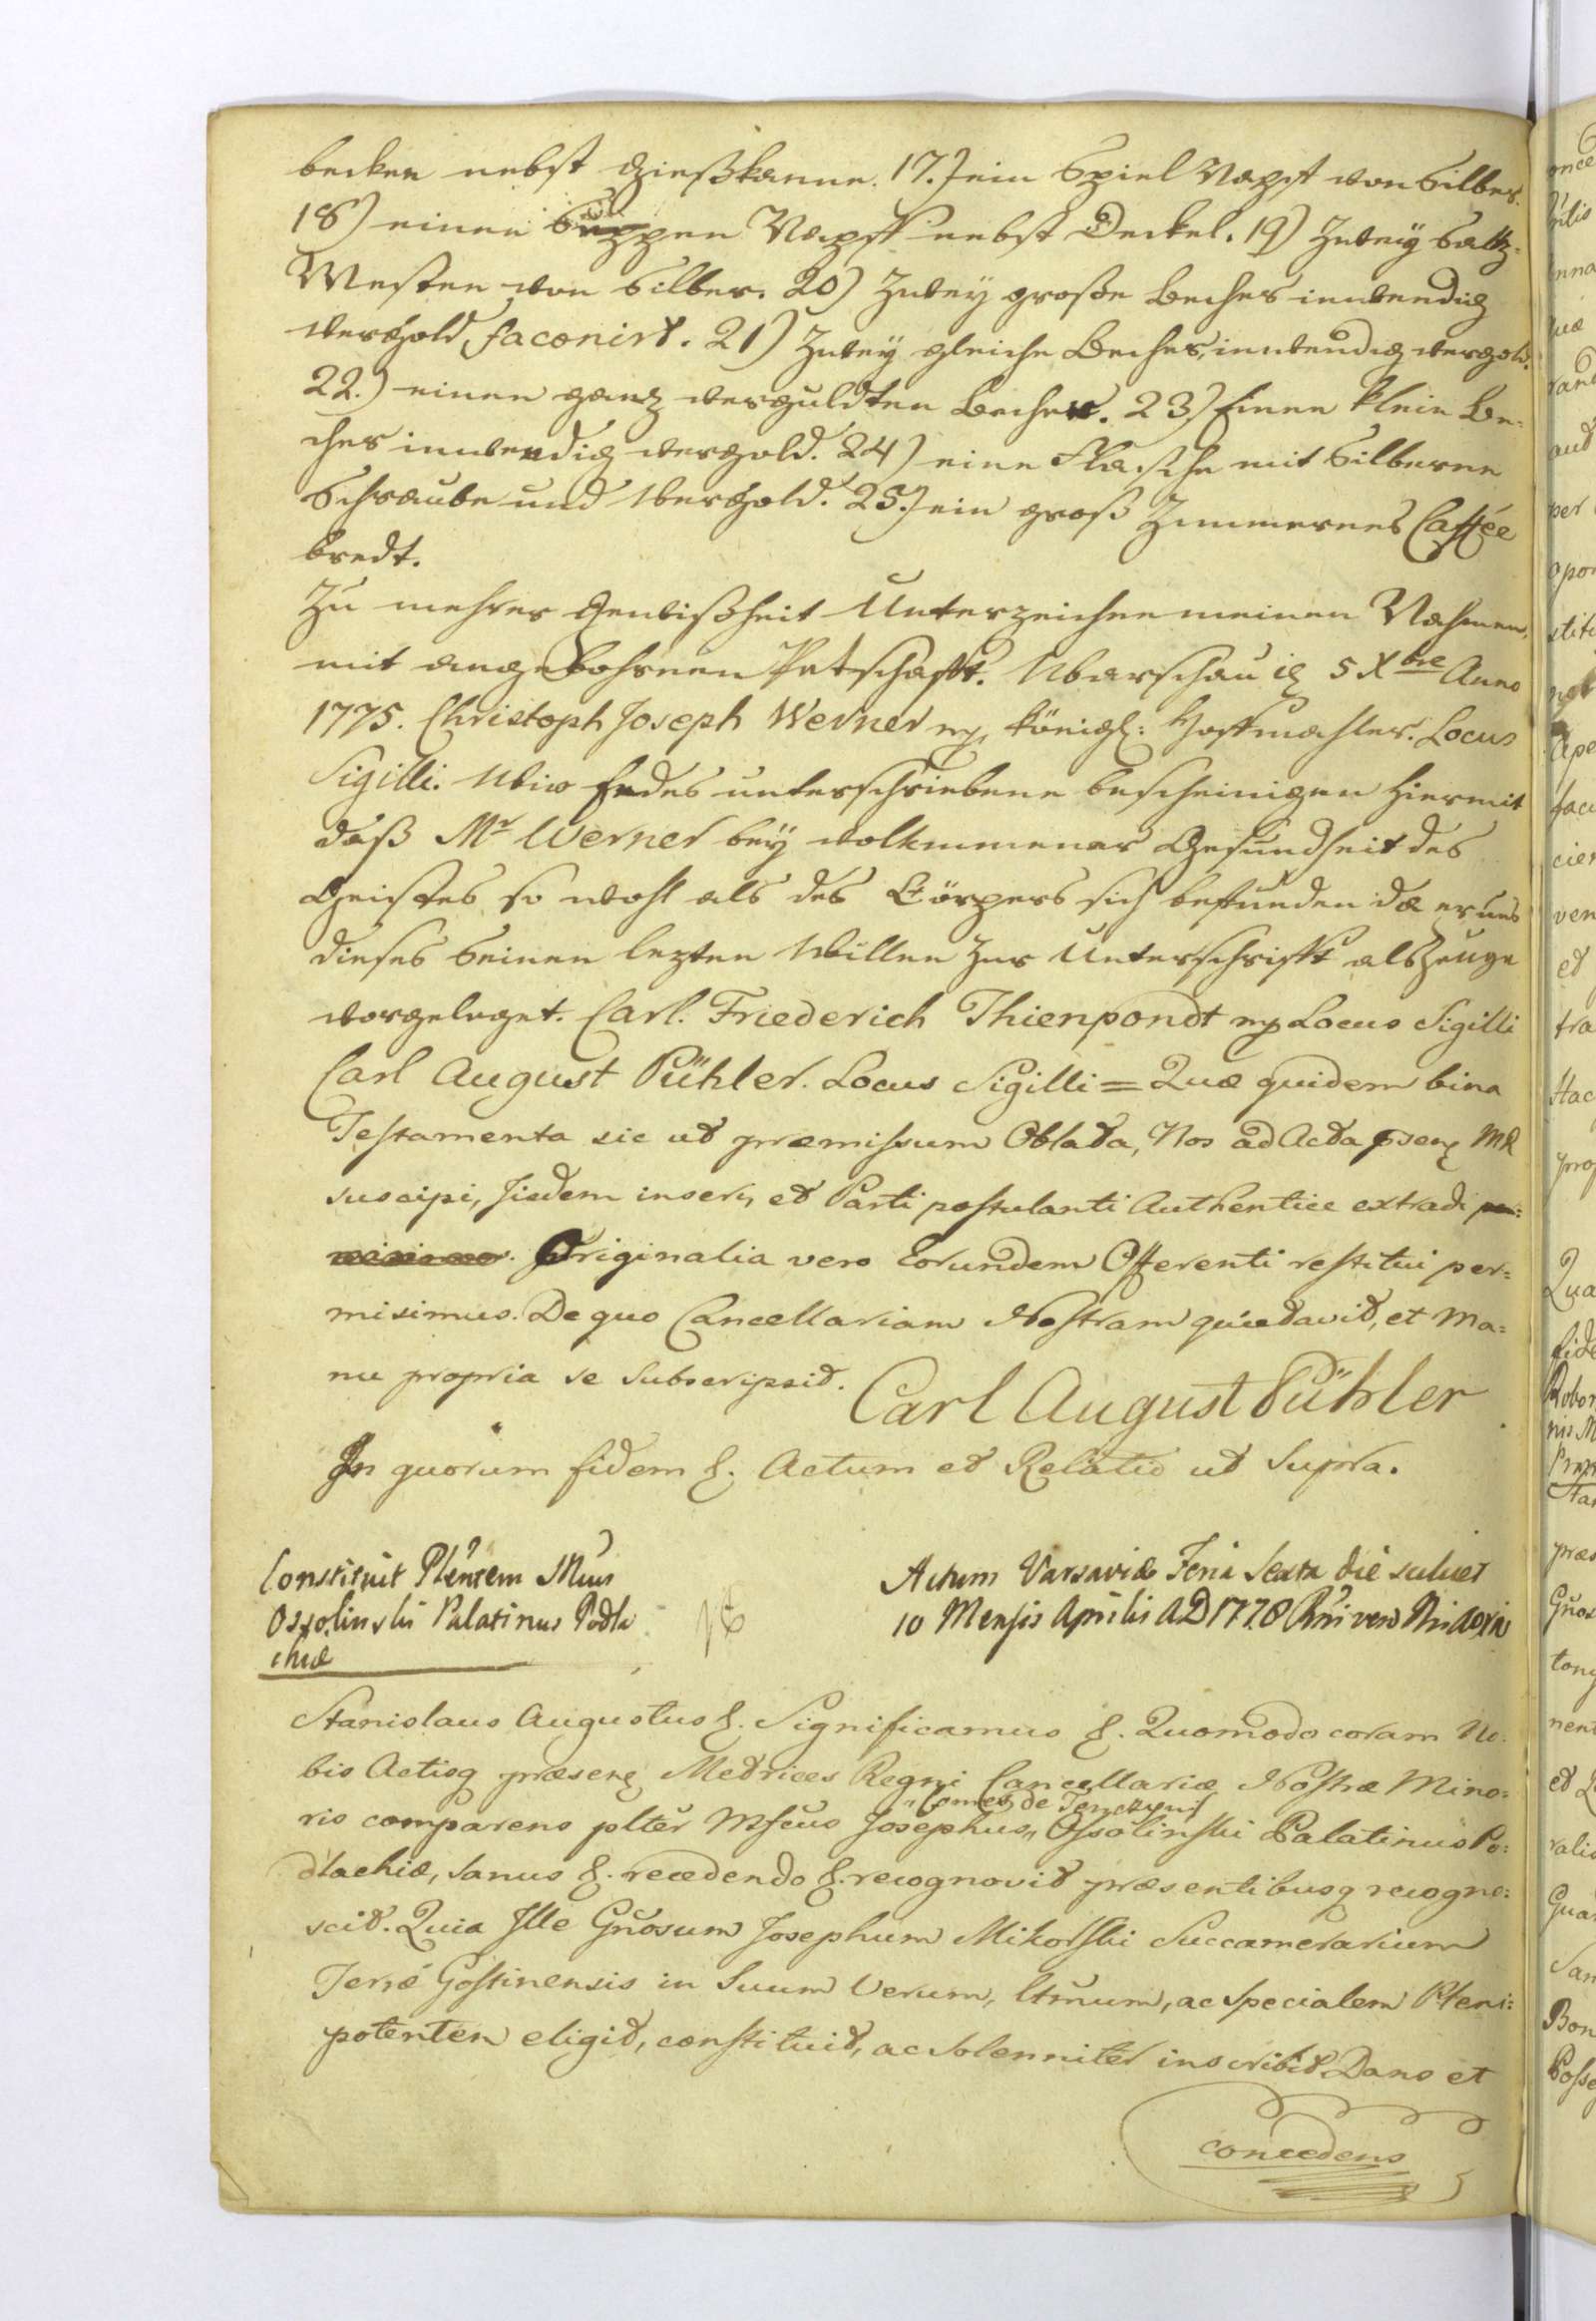 becken nebst Gießkanne. 17.) ein Spiel Napft von Silber.
18) einen Suppen Napft nebst Deckel. 19) Zweÿ Saltz-
Mesten von Silber. 20) Zweÿ große Becher inwendig
vergold faconirt. 21) Zweÿ gleiche Becher, inwendig vergold.
22.) einen ganz verguldten Becher. 23) Einen klein Be-
cher inwendig vergold. 24) eine Flasche mit Silberne
Schraube und Vergold. 25.) ein groß Zinnernes Caffée
bredt.
Zu mehrer Gewißheit Unterzeichne meinen Nahmen
mit angebohrnen Petschafft. Warschau d 5 Xbre Anno
1775. Christoph Joseph Werner mp Königl: Hoffmahler. Locus
Sigilli. Wir Endes unterschriebene bescheinigen hiermit
daß Mr Werner beÿ volkmmener Gesundheit des
Geistes so wohl als des Cörpers sich befunden da er uns
dieses seinen lezten Willen zur Unterschrifft als Zeuge
vorgeleget. Carl. Friederich Thienpondt mp Locus Sigilli
Carl August Pühler. Locus Sigilli = Quæ quidem bina
Testamenta sic ut præmissum Oblata, Nos ad Acta pseng MR
suscipi, Jisdem inseri, et Parti postulanti Authentice extradi per:
misimus. Originalia vero Eorundem Offerenti restitui per=
misimus. De quo Cancellariam Nostram quietavit, et Ma=
nu propria se subscripsit. Carl August Pühler
In quorum fidem &. Actum et Relatio ut Supra.
Constituit Plentem Mcus
Ossolinski Palatinus Podla
chiæ
Actum Varsaviæ Feria Sexta die scilicet
10 Mensis Aprilis AD 1778
Stanislaus Augustus &. Significamus &. Quomodo coram No:
bis Actisq præseng Metrices Regni Cancellariæ Nostræ Mino:
ris comparens plter Mfcus Josephus „Comes de Tenczyn„ Ossolinski Palatinus Po:
dlachiæ, sanus &. recedendo &. recognovit præsentibusq recogno:
scit. Quia Ille Gnosum Josephum Mikorski Succamerarium
Terræ Gostinensis in Suum Verum, ltmum, ac specialem Pleni:
potentem eligit, constituit, ac solenniter inscribit Dans et
concedens